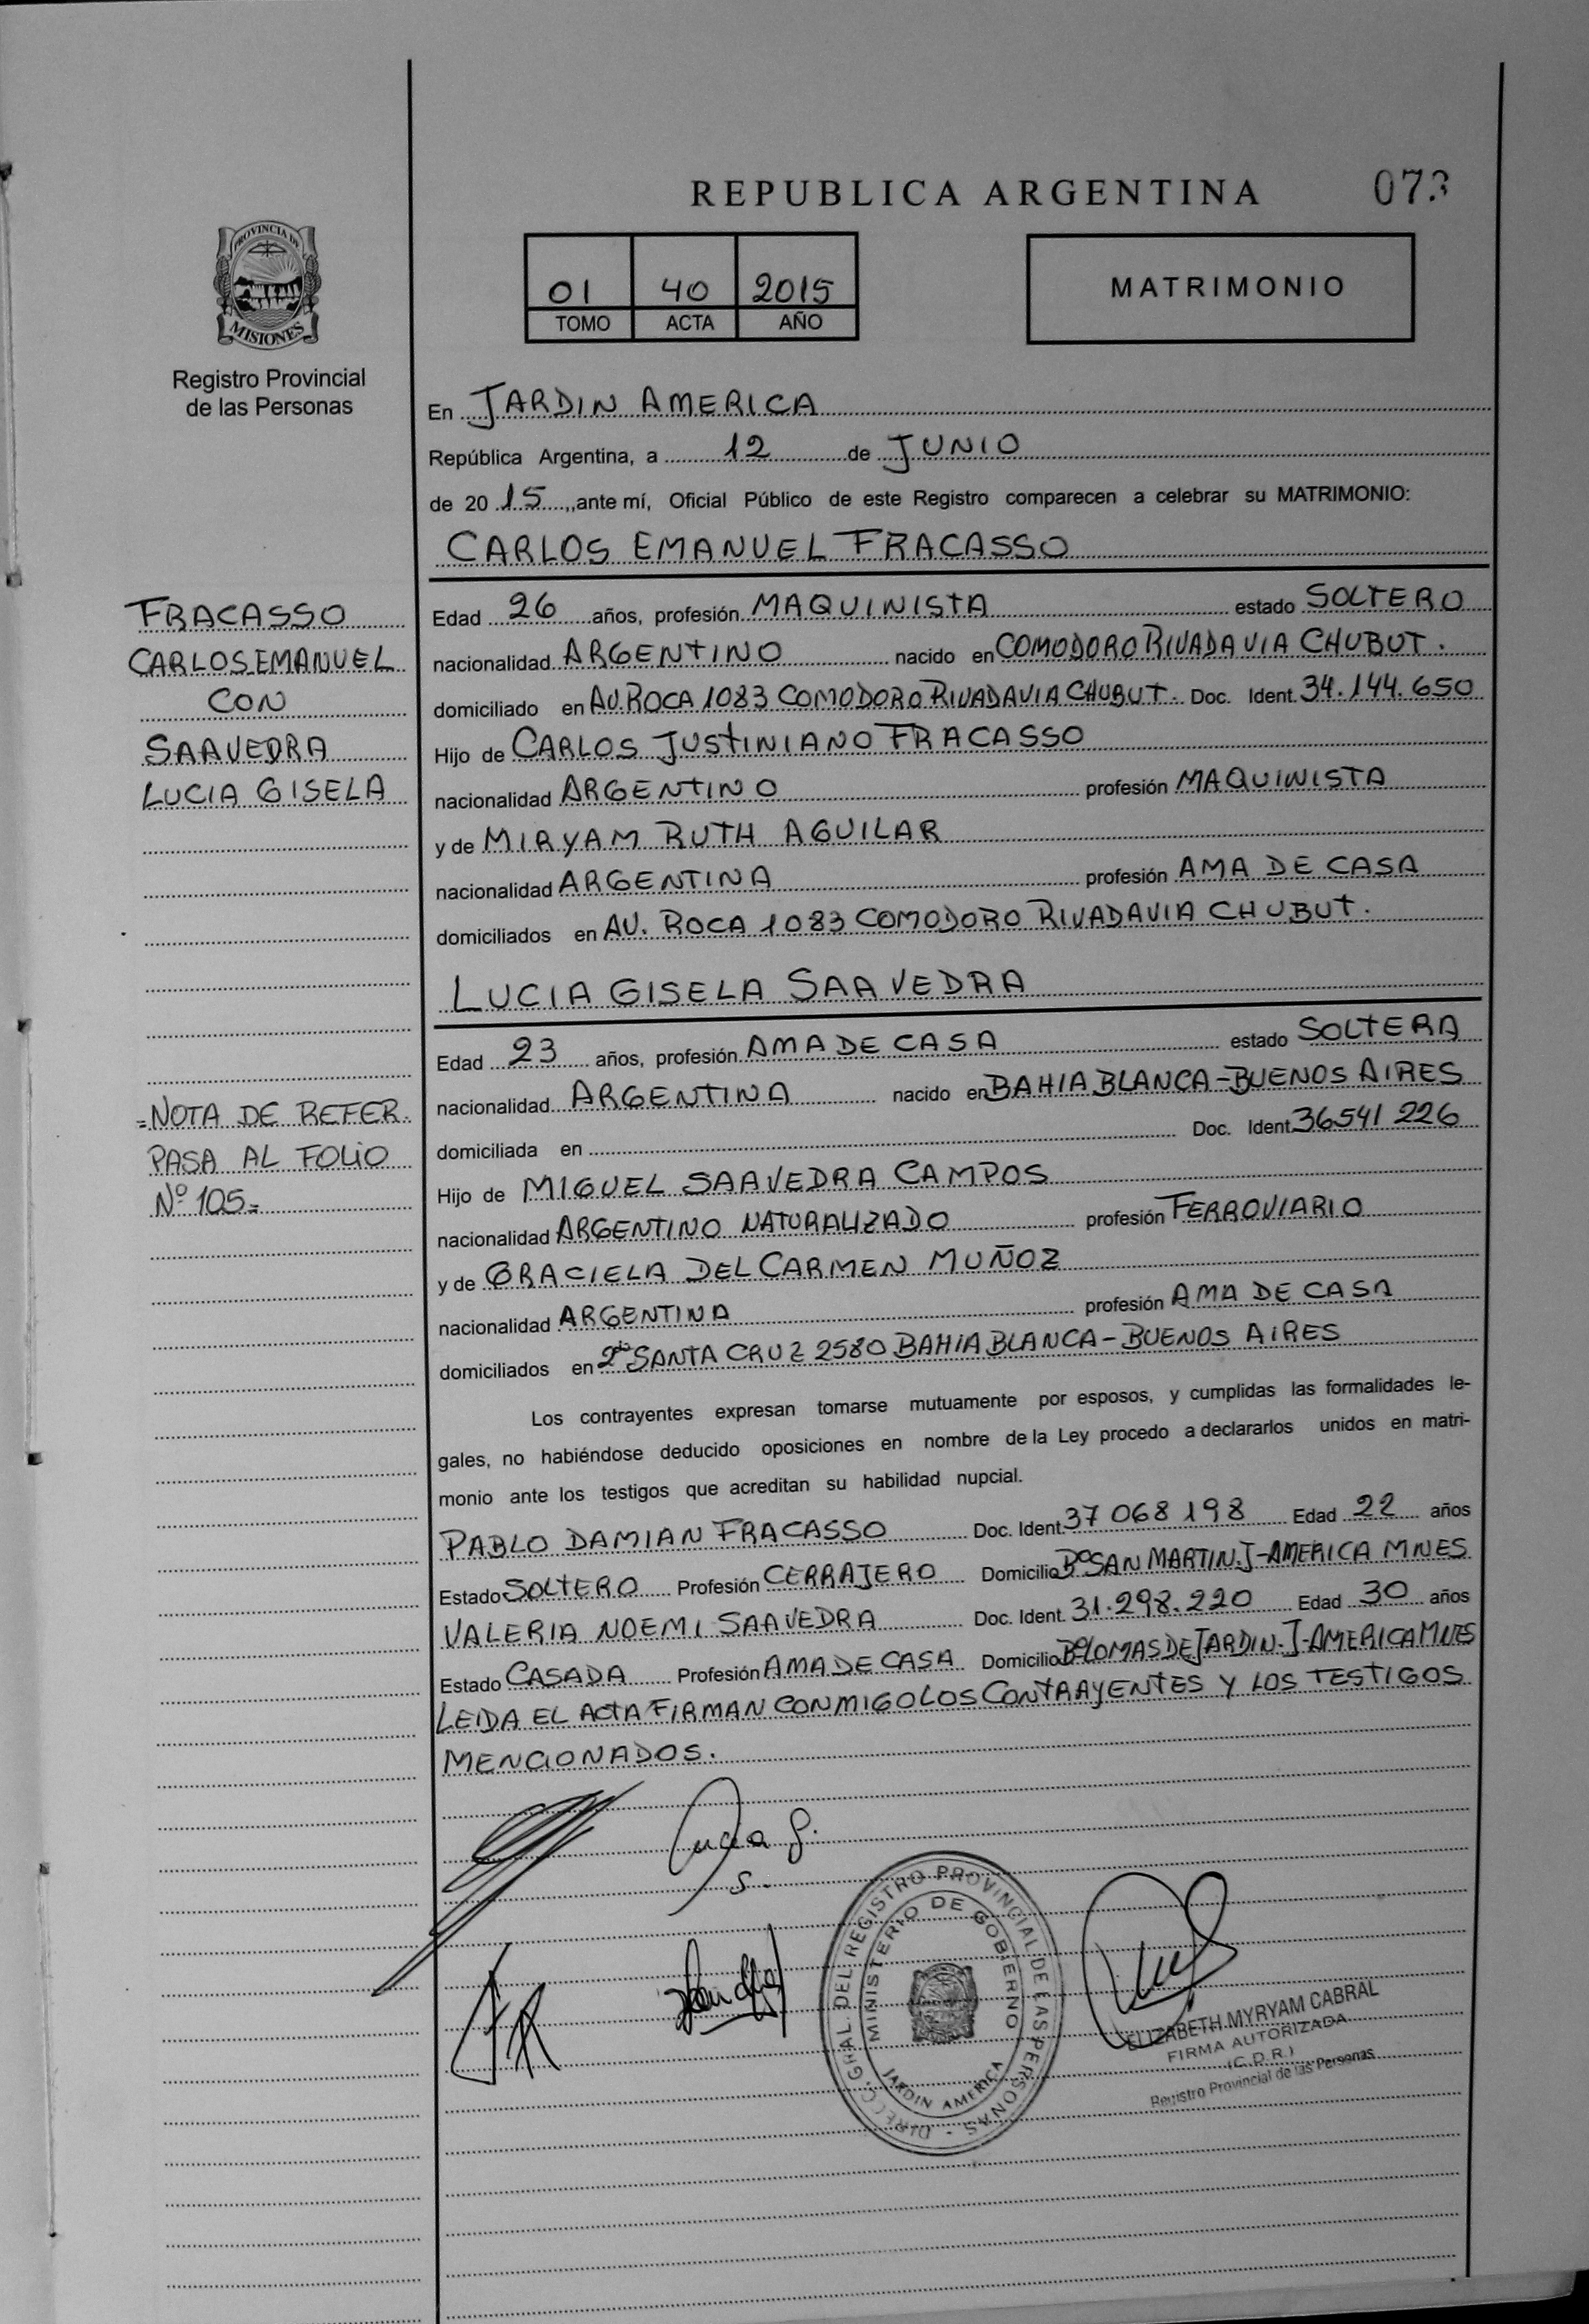 REPUBLICA ARGENTINA
073
PROVINCIA DE
MISIONES
Registro Provincial
de las Personas
01 40 2015
TOMO ACTA AÑO
MATRIMONIO
En JARDIN AMERICA
República Argentina, a 12 de JUNIO
de 20 15 ,,ante mí, Oficial Público de este Registro comparecen a celebrar su MATRIMONIO:
CARLOS EMANUEL FRACASSO
FRACASSO
CARLOS EMANUEL
CON
SAAVEDRA
LUCIA GISELA
Edad 26 años, profesión MAQUINISTA estado SOLTERO
nacionalidad ARGENTINO nacido en COMODORO RIVADAVIA CHUBUT.
domiciliado en AV. ROCA 1083 COMODORO RIVADAVIA CHUBUT. Doc. Ident. 34.144.650
Hijo de CARLOS JUSTINIANO FRACASSO
nacionalidad ARGENTINO profesión MAQUINISTA
y de MIRYAM RUTH AGUILAR
nacionalidad ARGENTINA profesión AMA DE CASA
domiciliados en AV. ROCA 1083 COMODORO RIVADAVIA CHUBUT.
LUCIA GISELA SAAVEDRA
Edad 23 años, profesión AMA DE CASA estado SOLTERA
nacionalidad ARGENTINA nacido en BAHIA BLANCA - BUENOS AIRES
domiciliada en Doc. Ident. 36541 226
Hijo de MIGUEL SAAVEDRA CAMPOS
nacionalidad ARGENTINO NATURALIZADO profesión FERROVIARIO
y de GRACIELA DEL CARMEN MUÑOZ
nacionalidad ARGENTINA profesión AMA DE CASA
domiciliados en SANTA CRUZ 2580 BAHIA BLANCA - BUENOS AIRES
=NOTA DE REFER.
PASA AL FOLIO
Nº 105=
Los contrayentes expresan tomarse mutuamente por esposos, y cumplidas las formalidades le-
gales, no habiéndose deducido oposiciones en nombre de la Ley procedo a declararlos unidos en matri-
monio ante los testigos que acreditan su habilidad nupcial.
PABLO DAMIAN FRACASSO Doc. Ident. 37 068 198 Edad 22 años
Estado SOLTERO Profesión CERRAJERO Domicilio Bº SAN MARTIN. J-AMERICA MNES
VALERIA NOEMI SAAVEDRA Doc. Ident. 31.298.220 Edad 30 años
Estado CASADA Profesión AMA DE CASA Domicilio Bº LOMAS DE JARDIN. J-AMERICA MNES
LEIDA EL ACTA FIRMAN CONMIGO LOS CONTRAYENTES Y LOS TESTIGOS
MENCIONADOS.
Lucia G.
S.
DIRECC. GRAL. DEL REGISTRO PROVINCIAL DE LAS PERSONAS -
MINISTERIO DE GOBIERNO
JARDIN AMERICA
ELIZABETH MYRYAM CABRAL
FIRMA AUTORIZADA
(C.D.R.)
Registro Provincial de las Personas